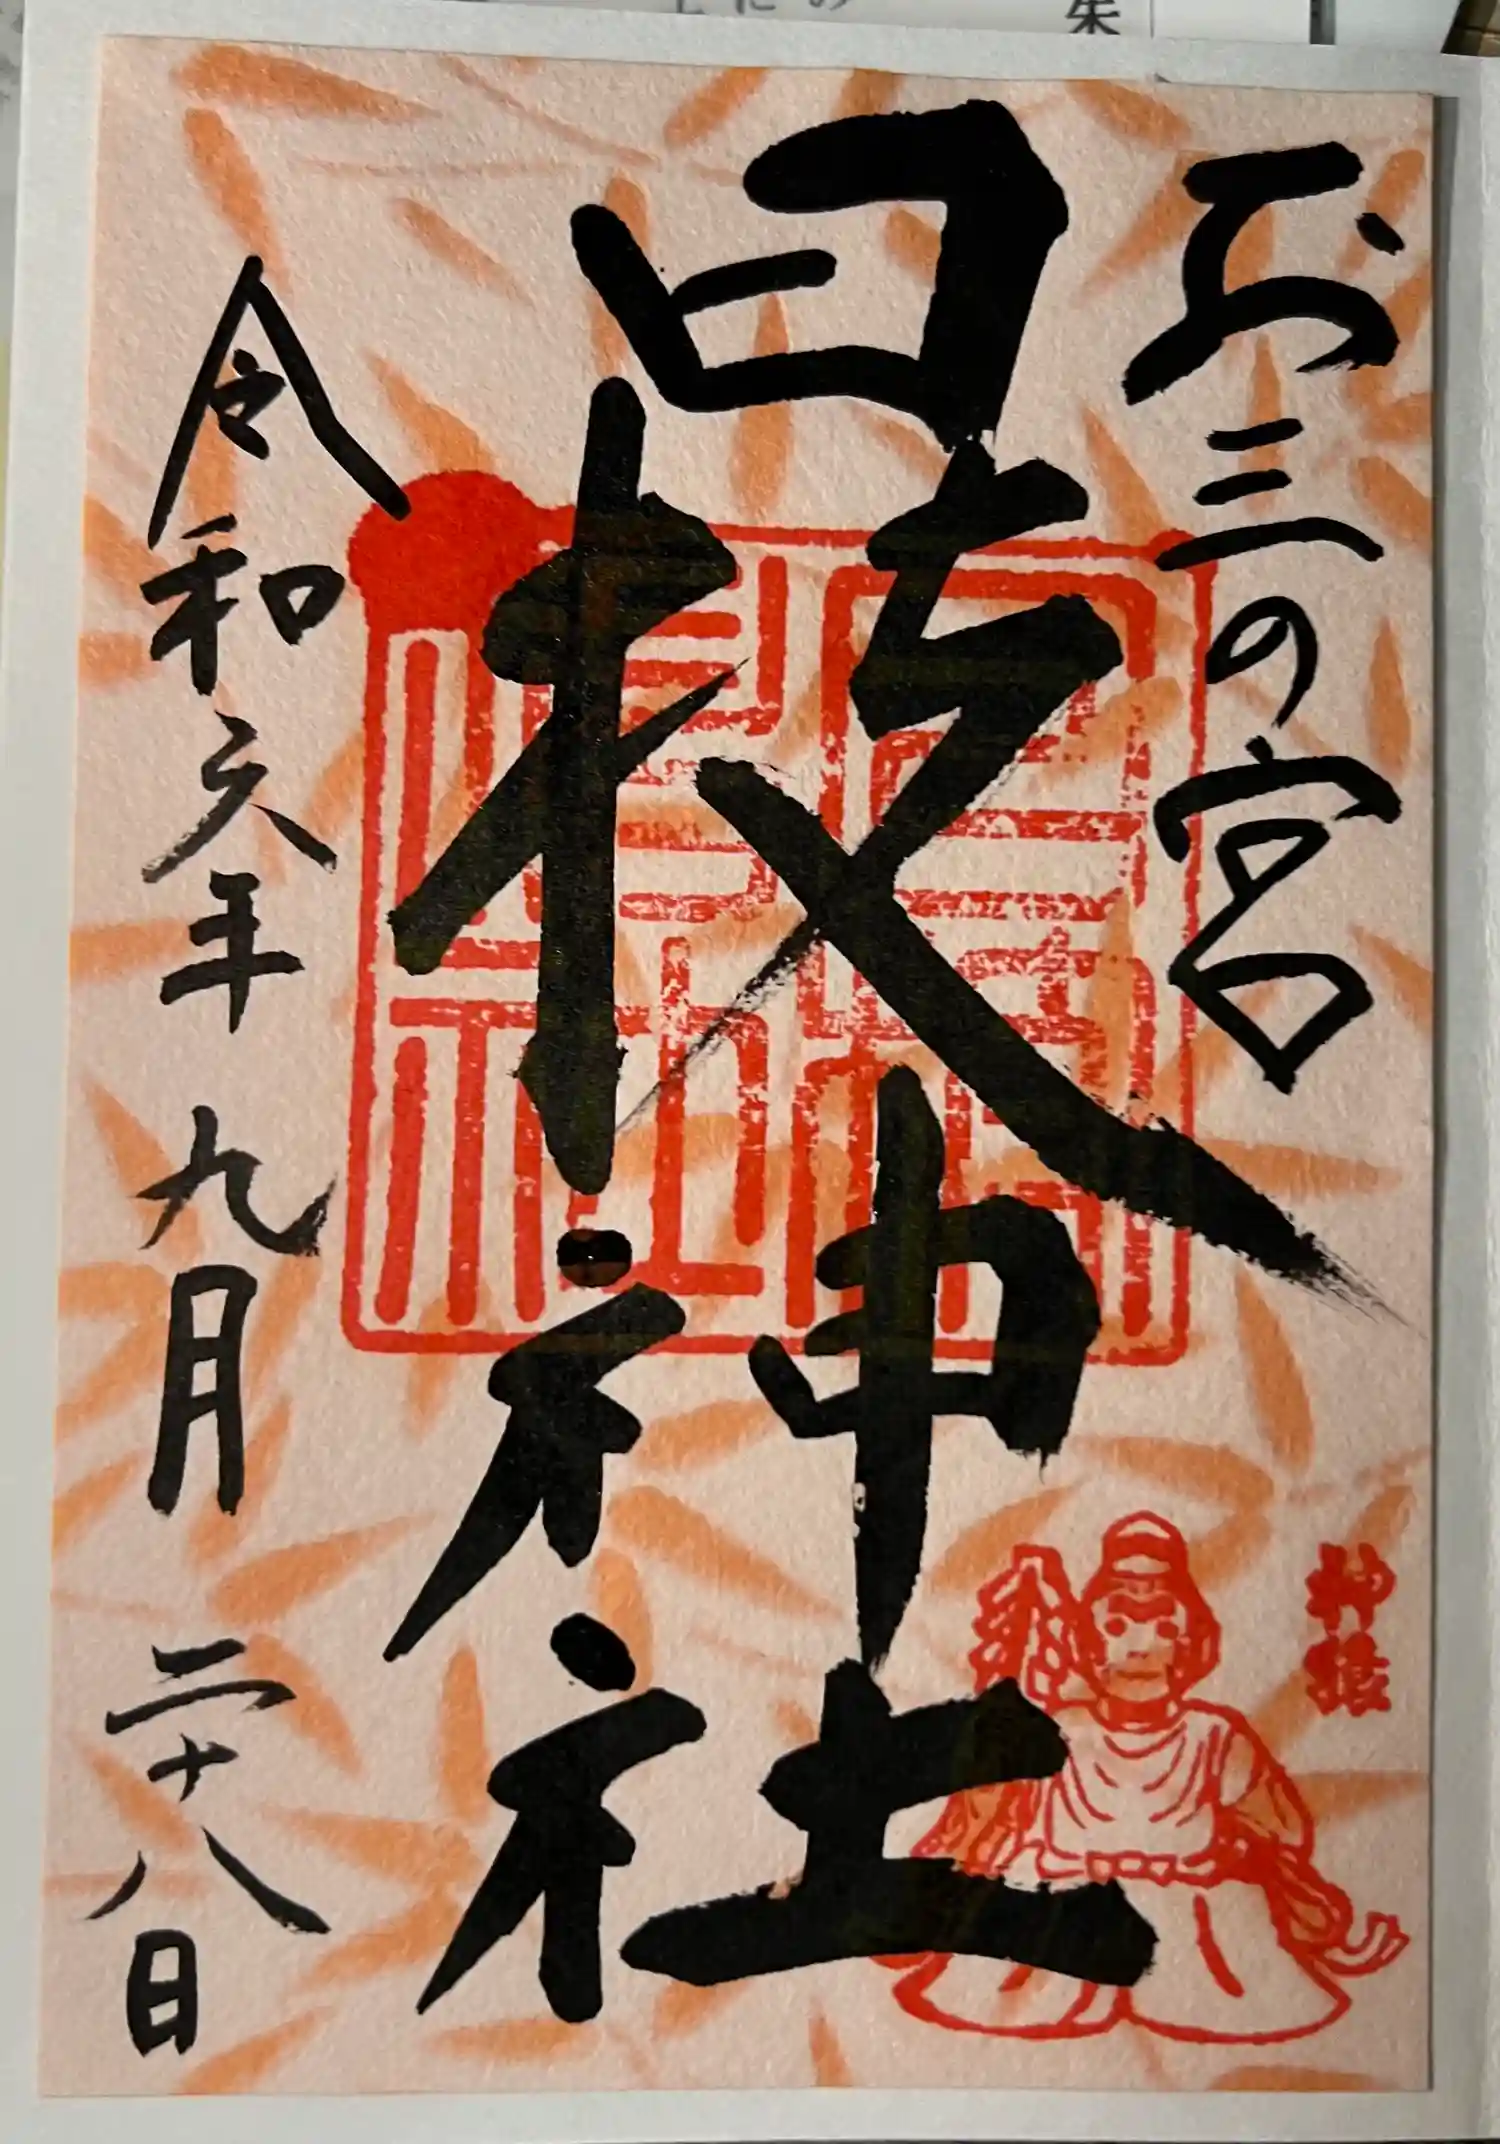 お三の宮
日枝神社
神猿
令和六年九月二十八日